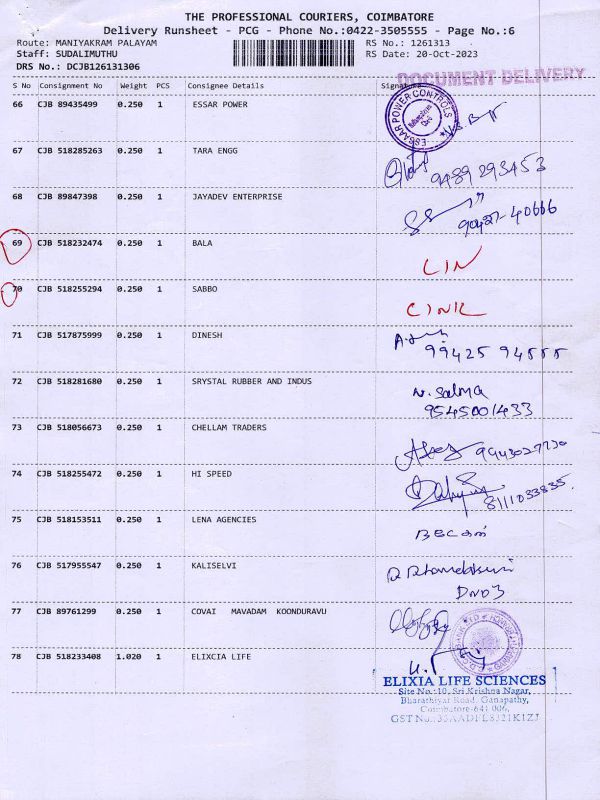 THE PROFESSIONAL COURIERS, COIMBATORE
Delivery Runsheet - PCG - Phone No.:0422-3505555 - Page No.:6
Route: MANIYAKRAM PALAYAM RS No.: 1261313
Staff: SUDALIMUTHU RS Date: 20-Oct-2023
DRS No.: DCJB126131306
DOCUMENT DELIVERY
S No Consignment No Weight PCS Consignee Details Signature
66 CJB 89435499 0.250 1 ESSAR POWER
ESSAAR POWER CONTROLS
67 CJB 518285263 0.250 1 TARA ENGG
9489 293453
68 CJB 89847398 0.250 1 JAYADEV ENTERPRISE
90427-40666
69 CJB 518232474 0.250 1 BALA
LIN
70 CJB 518255294 0.250 1 SABBO
71 CJB 517875999 0.250 1 DINESH
99425 94555
72 CJB 518281680 0.250 1 SRYSTAL RUBBER AND INDUS
N. Salma
9545001433
73 CJB 518056673 0.250 1 CHELLAM TRADERS
74 CJB 518255472 0.250 1 HI SPEED
8111033835.
75 CJB 518153511 0.250 1 LENA AGENCIES
76 CJB 517955547 0.250 1 KALISELVI
77 CJB 89761299 0.250 1 COVAI MAVADAM KOONDURAVU
78 CJB 518233408 1.020 1 ELIXCIA LIFE
ELIXIA LIFE SCIENCES
Site No.:10, Sri Krishna Nagar,
Bharathiyar Road, Ganapathy,
Coimbatore-641 006.